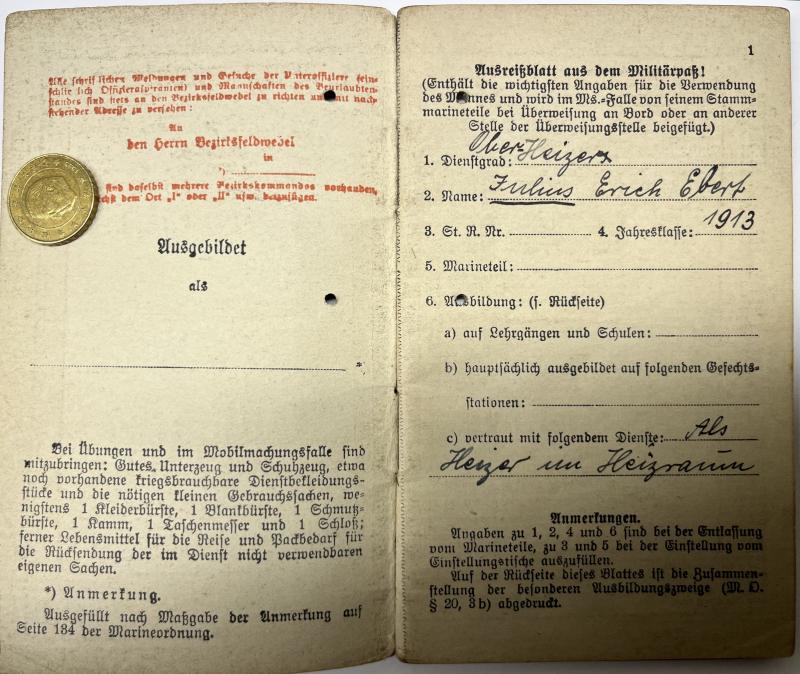 Alle schriftlichen Meldungen und Gesuche der Unteroffiziere (ein-
schließlich Offizieraspiranten) und Mannschaften des Beurlaubten-
standes sind stets an den Bezirksfeldwebel zu richten und mit nach-
stehender Adresse zu versehen:
An
den Herrn Bezirksfeldwebel
in
sind daselbst mehrere Bezirkskommandos vorhanden,
dem Ort „I" oder „II" usw. beizufügen.
Ausgebildet
als
*)
Bei Übungen und im Mobilmachungsfalle sind
mitzubringen: Gutes Unterzeug und Schuhzeug, etwa
noch vorhandene kriegsbrauchbare Dienstbekleidungs-
stücke und die nötigen kleinen Gebrauchsachen, we-
nigstens 1 Kleiderbürste, 1 Blankbürste, 1 Schmutz-
bürste, 1 Kamm, 1 Taschenmesser und 1 Schloß;
ferner Lebensmittel für die Reise und Packbedarf für
die Rücksendung der im Dienst nicht verwendbaren
eigenen Sachen.
*) Anmerkung.
Ausgefüllt nach Maßgabe der Anmerkung auf
Seite 134 der Marineordnung.
1
Ausreißblatt aus dem Militärpaß!
(Enthält die wichtigsten Angaben für die Verwendung
des Mannes und wird im Ms.-Falle von seinem Stamm-
marineteile bei Überweisung an Bord oder an anderer
Stelle der Überweisungsstelle beigefügt.)
1. Dienstgrad: Ober-Heizer
2. Name: Julius Erich Ebert
3. St. R. Nr. 4. Jahresklasse: 1913
5. Marineteil:
6. Ausbildung: (s. Rückseite)
a) auf Lehrgängen und Schulen:
b) hauptsächlich ausgebildet auf folgenden Gefechts-
stationen:
c) vertraut mit folgendem Dienste: Als
Heizer im Heizraum
Anmerkungen.
Angaben zu 1, 2, 4 und 6 sind bei der Entlassung
vom Marineteile, zu 3 und 5 bei der Einstellung vom
Einstellungstische auszufüllen.
Auf der Rückseite dieses Blattes ist die Zusammen-
stellung der besonderen Ausbildungszweige (M. O.
§ 20, 3 b) abgedruckt.